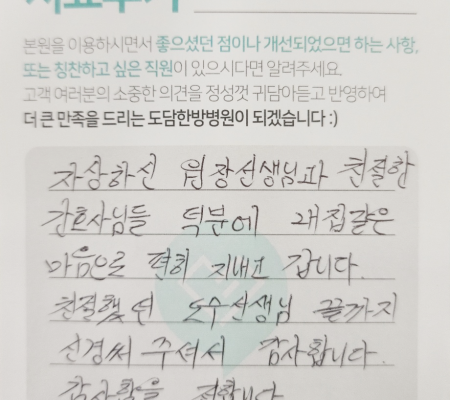 본원을 이용하시면서 좋으셨던 점이나 개선되었으면 하는 사항,
또는 칭찬하고 싶은 직원이 있으시다면 알려주세요.
고객 여러분의 소중한 의견을 정성껏 귀담아듣고 반영하여
더 큰 만족을 드리는 도담한방병원이 되겠습니다 :)
자상하신 원장선생님과 친절한
간호사님들 덕분에 내집같은
마음으로 편히 지내고 갑니다.
친절했던 도수선생님 끝까지
신경써 주셔서 감사합니다.
감사함을 전합니다